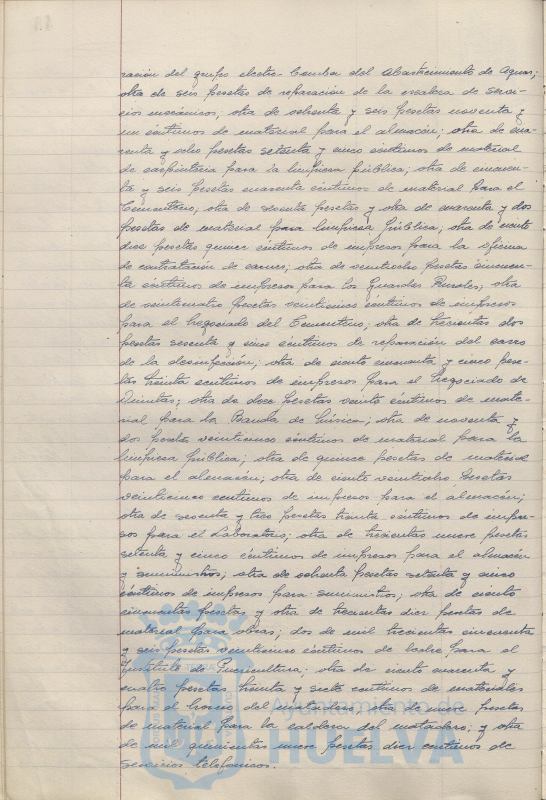 ración del grupo electro bomba del Abastecimiento de Aguas;
otra de seis pesetas de reparación de la escalera de servi-
cios mecánicos; otra de ochenta y seis pesetas noventa y
un céntimos de material para el almacén; otra de cua-
renta y ocho pesetas setenta y cinco céntimos de material
de carpintería para la limpieza pública; otra de cincuen-
ta y seis pesetas cuarenta céntimos de material para el
Cementerio; otra de sesenta pesetas y otra de cuarenta y dos
pesetas de material para limpieza pública; otra de ciento
diez pesetas quince céntimos de impresos para la oficina
de contratación de carnes; otra de veintiocho pesetas cincuen-
ta céntimos de impresos para los Guardas Rurales; otra
de veinticuatro pesetas veinticinco céntimos de impresos
para el Negociado del Cementerio; otra de trescientas dos
pesetas sesenta y cinco céntimos de reparación del carro
de la desinfección; otra de ciento cincuenta y cinco pese-
tas treinta céntimos de impresos para el Negociado de
Quintas; otra de doce pesetas veinte céntimos de mate-
rial para la Banda de Música; otra de noventa y
dos pesetas veinticinco céntimos de material para la
limpieza pública; otra de quince pesetas de material
para el almacén; otra de ciento veintiocho pesetas
veinticinco céntimos de impresos para el almacén;
otra de sesenta y tres pesetas treinta céntimos de impre-
sos para el Laboratorio; otra de trescientas nueve pesetas
setenta y cinco céntimos de impresos para el almacén
y suministros; otra de ochenta pesetas setenta y cinco
céntimos de impresos para suministros; otra de ciento
cincuenta pesetas y otra de trescientas diez pesetas de
material para obras; dos de mil trescientas cincuenta
y seis pesetas veinticinco céntimos de leche para el
Instituto de Puericultura; otra de ciento cuarenta y
cuatro pesetas treinta y siete céntimos de materiales
para el horno del matadero; otra de nueve pesetas
de material para la caldera del matadero; y otra
de mil quinientas nueve pesetas diez céntimos de
servicios telefónicos.
Ayuntamiento de
HUELVA